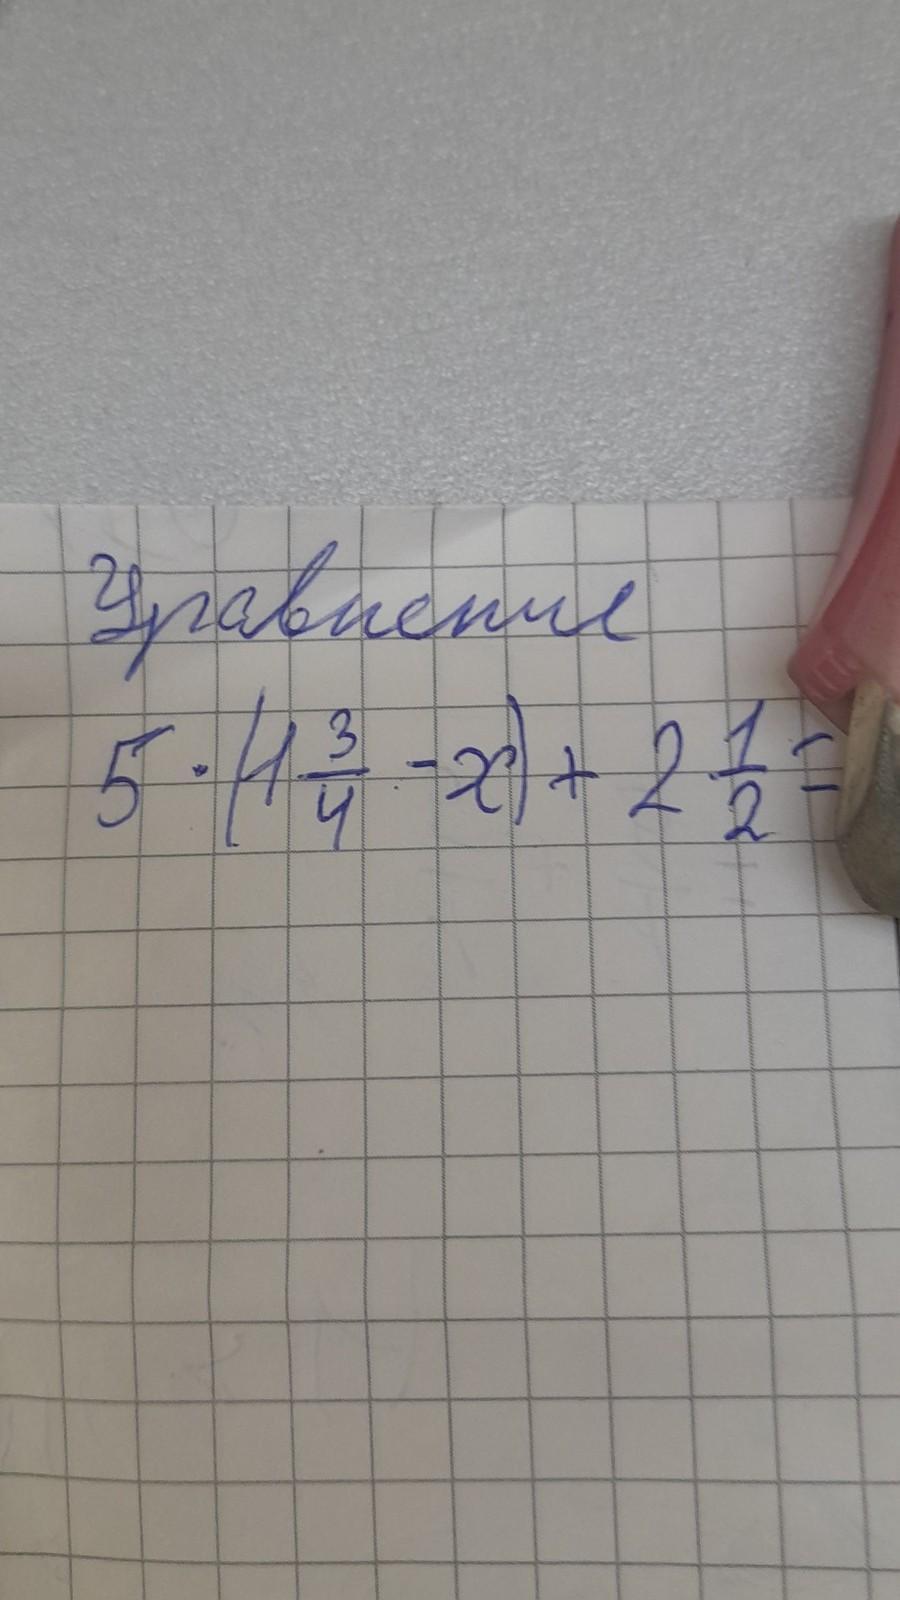 Уравнение
5 · (1 3/4 - x) + 2 1/2 =